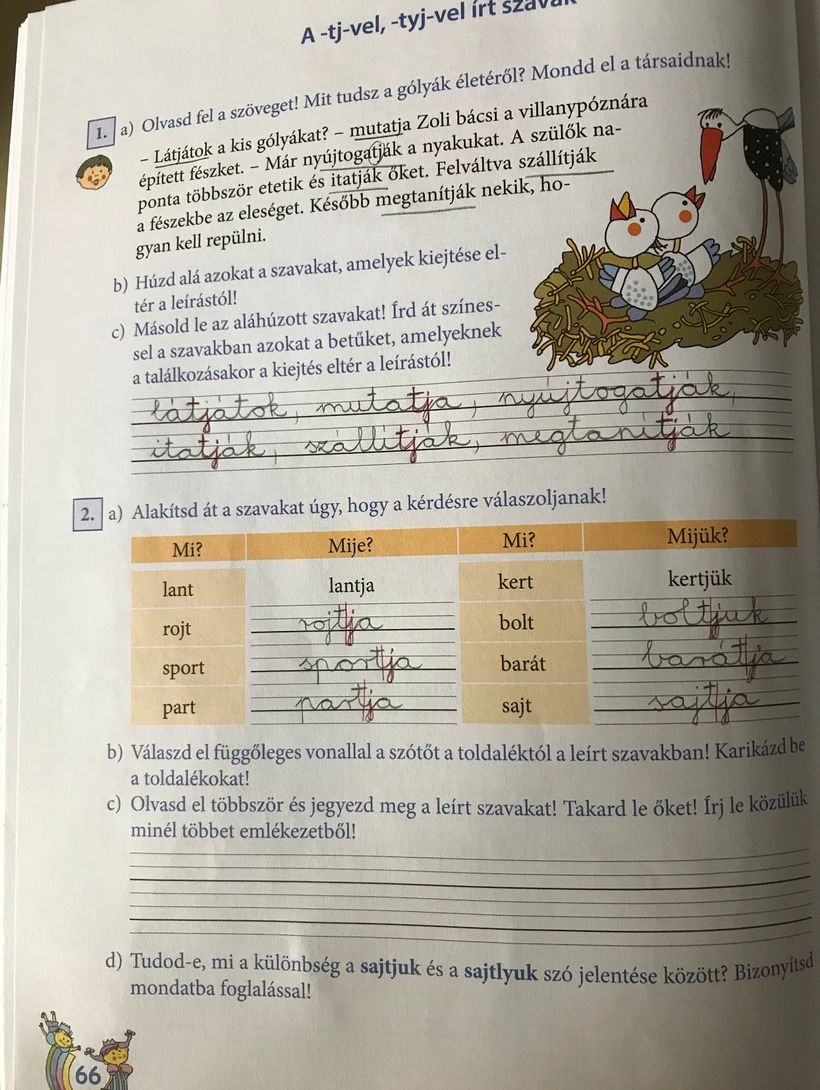 A -tj-vel, -tyj-vel írt szavak
1. a) Olvasd fel a szöveget! Mit tudsz a gólyák életéről? Mondd el a társaidnak!
– Látjátok a kis gólyákat? – mutatja Zoli bácsi a villanypóznára
épített fészket. – Már nyújtogatják a nyakukat. A szülők na-
ponta többször etetik és itatják őket. Felváltva szállítják
a fészekbe az eleséget. Később megtanítják nekik, ho-
gyan kell repülni.
b) Húzd alá azokat a szavakat, amelyek kiejtése el-
tér a leírástól!
c) Másold le az aláhúzott szavakat! Írd át színes-
sel a szavakban azokat a betűket, amelyeknek
a találkozásakor a kiejtés eltér a leírástól!
látjátok, mutatja, nyújtogatják,
itatják, szállítják, megtanítják
2. a) Alakítsd át a szavakat úgy, hogy a kérdésre válaszoljanak!
Mi? Mije? Mi? Mijük?
lant lantja kert kertjük
rojt rojtja bolt boltjuk
sport sportja barát barátja
part partja sajt sajtja
b) Válaszd el függőleges vonallal a szótőt a toldaléktól a leírt szavakban! Karikázd be
a toldalékokat!
c) Olvasd el többször és jegyezd meg a leírt szavakat! Takard le őket! Írj le közülük
minél többet emlékezetből!
d) Tudod-e, mi a különbség a sajtjuk és a sajtlyuk szó jelentése között? Bizonyítsd
mondatba foglalással!
66